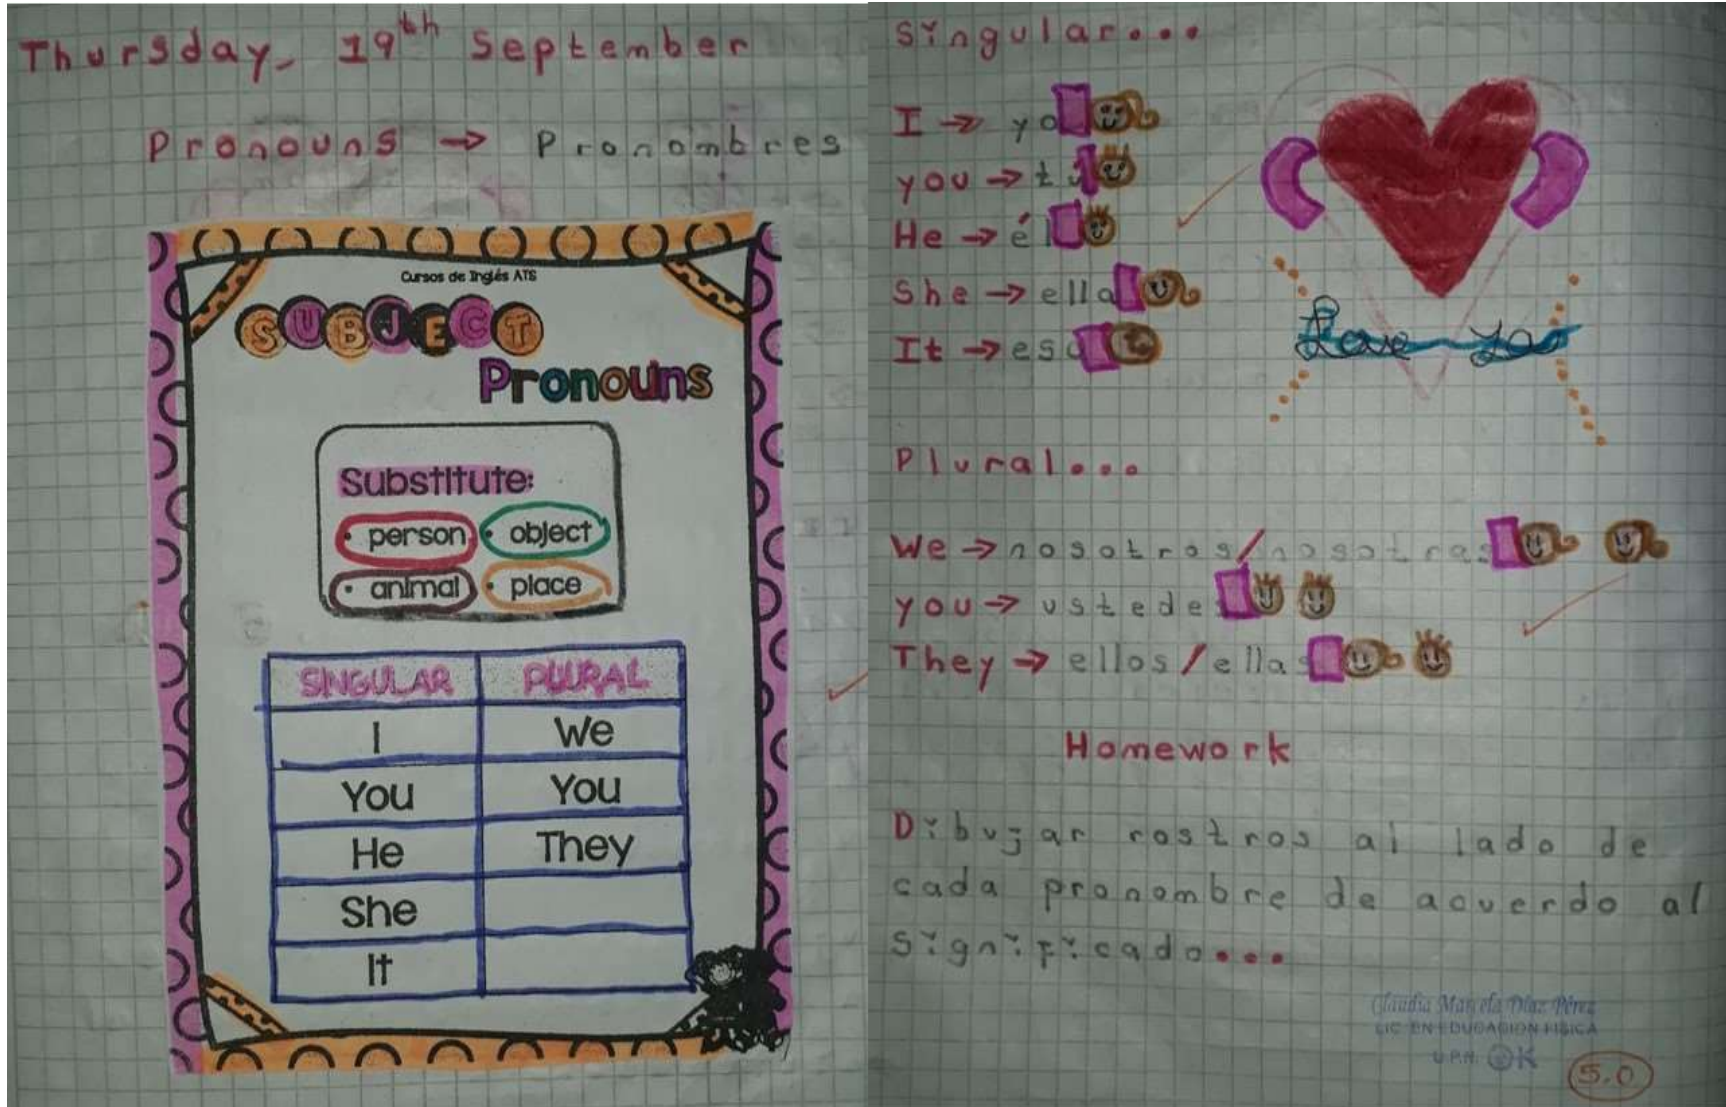 Thursday, 19th September
Pronouns → Pronombres
Cursos de Inglés ATS
SUBJECT
Pronouns
Substitute:
• person • object
• animal • place
SINGULAR PLURAL
I We
You You
He They
She
It
Singular...
I → yo
you → tú
He → él
She → ella
It → eso
Love You
Plural...
We → nosotros/nosotras
you → ustedes
They → ellos/ellas
Homework
Dibujar rostros al lado de
cada pronombre de acuerdo al
significado...
Claudia Marcela Díaz Pérez
LIC. EN EDUCACION FISICA
U.P.N. OK
5.0